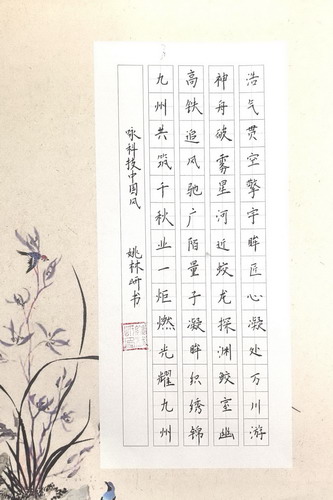 浩气贯空擎宇眸匠心凝处万川游
神舟破雾星河近蛟龙探渊鲛室幽
高铁追风驰广陌量子凝眸织绣锦
九州共筑千秋业一炬燃光耀九州
咏科技中国风 姚林研书